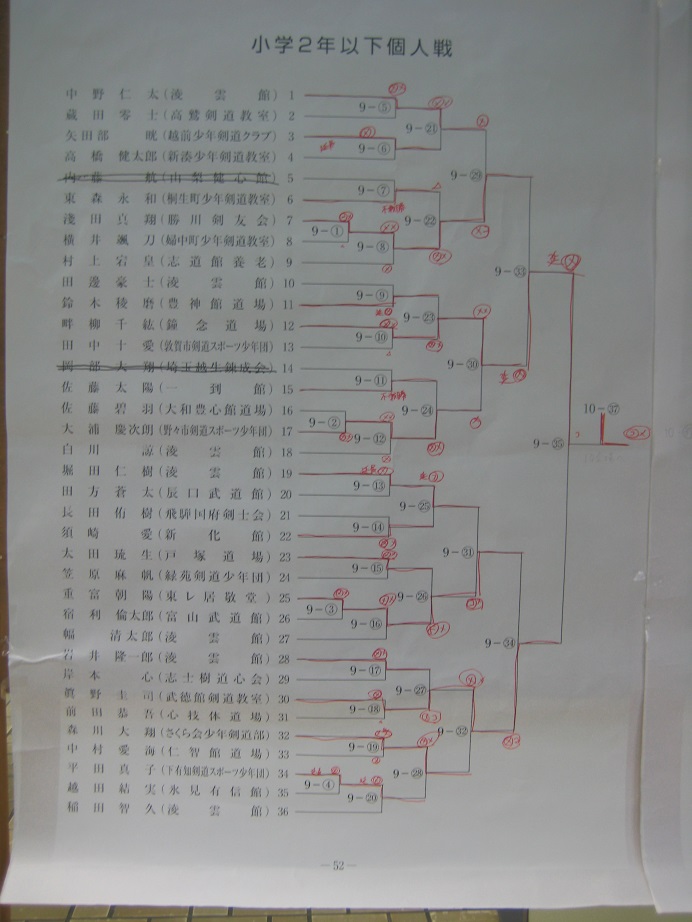 小学2年以下個人戦
中野仁太(淩雲館) 1
蔵田零士(高鷲剣道教室) 2
矢田部 晄(越前少年剣道クラブ) 3
高橋健太郎(新湊少年剣道教室) 4
内藤 航(山梨健心館) 5
東森永和(桐生町少年剣道教室) 6
淺田真翔(勝川剣友会) 7
横井颯刀(婦中町少年剣道教室) 8
村上宕皇(志道館養老) 9
田邊豪士(淩雲館) 10
鈴木稜磨(豊神館道場) 11
畔柳千紘(鐘念道場) 12
田中十愛(敦賀市剣道スポーツ少年団) 13
岡部大翔(埼玉越生錬成会) 14
佐藤太陽(一到館) 15
佐藤碧羽(大和豊心館道場) 16
大浦慶次朗(野々市剣道スポーツ少年団) 17
白川 諒(淩雲館) 18
堀田仁樹(淩雲館) 19
田方蒼太(辰口武道館) 20
長田佑樹(飛騨国府剣士会) 21
須崎 愛(新化館) 22
太田琉生(戸塚道場) 23
笠原麻帆(緑苑剣道少年団) 24
重富朝陽(東レ居敬堂) 25
宿利倫太郎(富山武道館) 26
幅 清太郎(淩雲館) 27
岩井隆一郎(淩雲館) 28
岸本 心(志士樹道心会) 29
眞野圭司(武徳館剣道教室) 30
前田恭吾(心技体道場) 31
森川大翔(さくら会少年剣道部) 32
中村愛海(仁智館道場) 33
平田真子(下有知剣道スポーツ少年団) 34
越田結実(氷見有信館) 35
稲田智久(淩雲館) 36
9-①
9-②
9-③
9-④
9-⑤
9-⑥
9-⑦
9-⑧
9-⑨
9-⑩
9-⑪
9-⑫
9-⑬
9-⑭
9-⑮
9-⑯
9-⑰
9-⑱
9-⑲
9-⑳
9-㉑
9-㉒
9-㉓
9-㉔
9-㉕
9-㉖
9-㉗
9-㉘
9-㉙
9-㉚
9-㉛
9-㉜
9-㉝
9-㉞
9-㉟
10-㊲
—52—